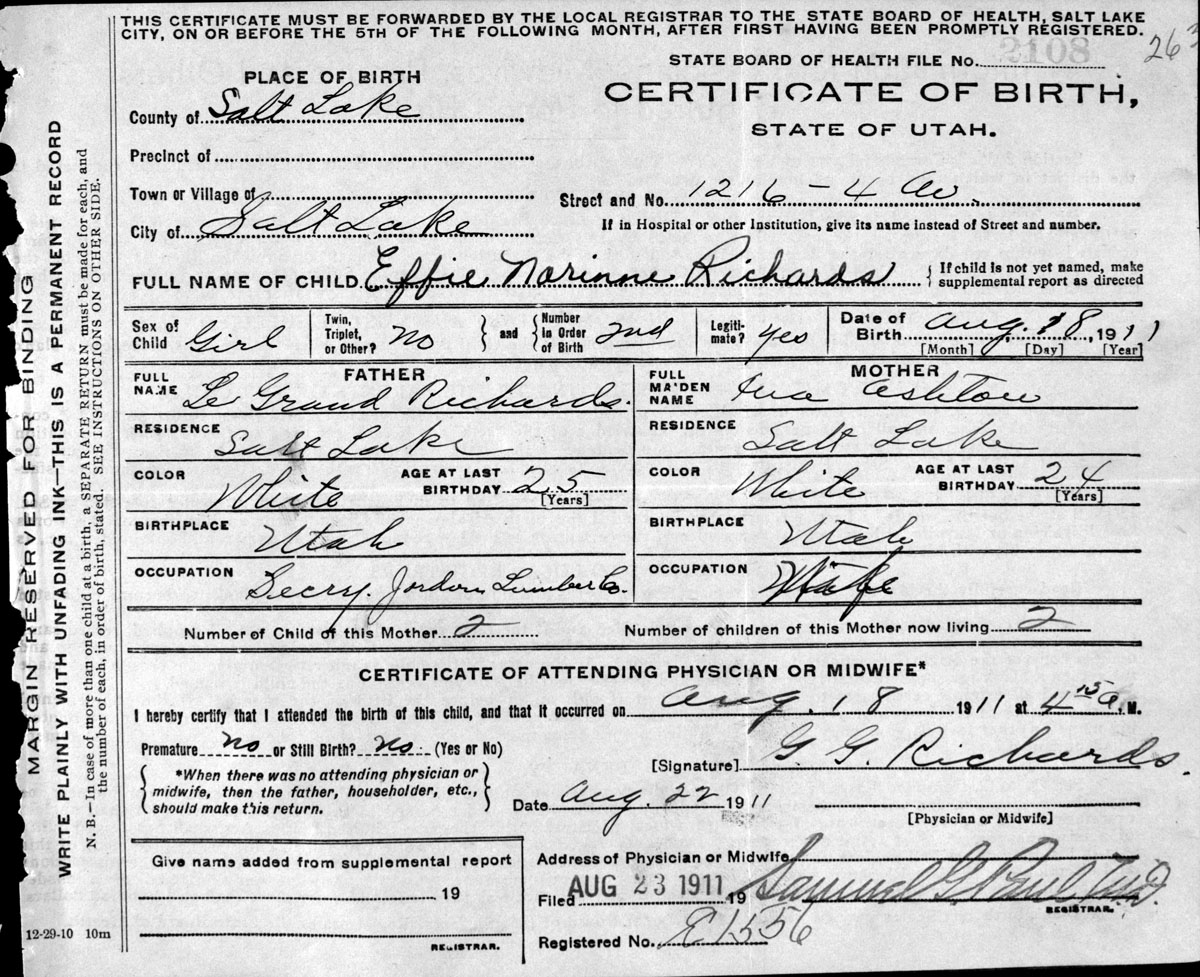 THIS CERTIFICATE MUST BE FORWARDED BY THE LOCAL REGISTRAR TO THE STATE BOARD OF HEALTH, SALT LAKE
CITY, ON OR BEFORE THE 5TH OF THE FOLLOWING MONTH, AFTER FIRST HAVING BEEN PROMPTLY REGISTERED.
263
STATE BOARD OF HEALTH FILE No. 2108
PLACE OF BIRTH
CERTIFICATE OF BIRTH,
STATE OF UTAH.
County of Salt Lake
Precinct of
Town or Village of
Street and No. 1216 - 4 Av.
City of Salt Lake
If in Hospital or other Institution, give its name instead of Street and number.
FULL NAME OF CHILD Effie Norinne Richards { If child is not yet named, make
supplemental report as directed
Sex of Child Girl
Twin, Triplet, or Other? No } and { Number in Order of Birth 2nd
Legiti-mate? Yes
Date of Birth Aug. 18, 1911
[Month] [Day] [Year]
FATHER
FULL NAME Le Grand Richards.
RESIDENCE Salt Lake
COLOR White AGE AT LAST BIRTHDAY 25 [Years]
BIRTHPLACE Utah
OCCUPATION Secry. Jordan Lumber Co.
MOTHER
FULL MAIDEN NAME Ina Ashton
RESIDENCE Salt Lake
COLOR White AGE AT LAST BIRTHDAY 24 [Years]
BIRTHPLACE Utah
OCCUPATION Wife
Number of Child of this Mother 2 Number of children of this Mother now living 2
CERTIFICATE OF ATTENDING PHYSICIAN OR MIDWIFE*
I hereby certify that I attended the birth of this child, and that it occurred on Aug. 18 1911 at 4 15 a. M.
Premature no or Still Birth? no. (Yes or No)
{ *When there was no attending physician or
midwife, then the father, householder, etc.,
should make this return. }
[Signature] G. G. Richards.
Date Aug. 22 1911
[Physician or Midwife]
Give name added from supplemental report
19
REGISTRAR.
Address of Physician or Midwife
Filed AUG 23 1911 19 Samuel G. Paul M.D.
REGISTRAR.
Registered No. E1556
MARGIN RESERVED FOR BINDING
WRITE PLAINLY WITH UNFADING INK—THIS IS A PERMANENT RECORD
N. B.—In case of more than one child at a birth, a SEPARATE RETURN must be made for each, and
the number of each, in order of birth, stated. SEE INSTRUCTIONS ON OTHER SIDE.
12-29-10 10m